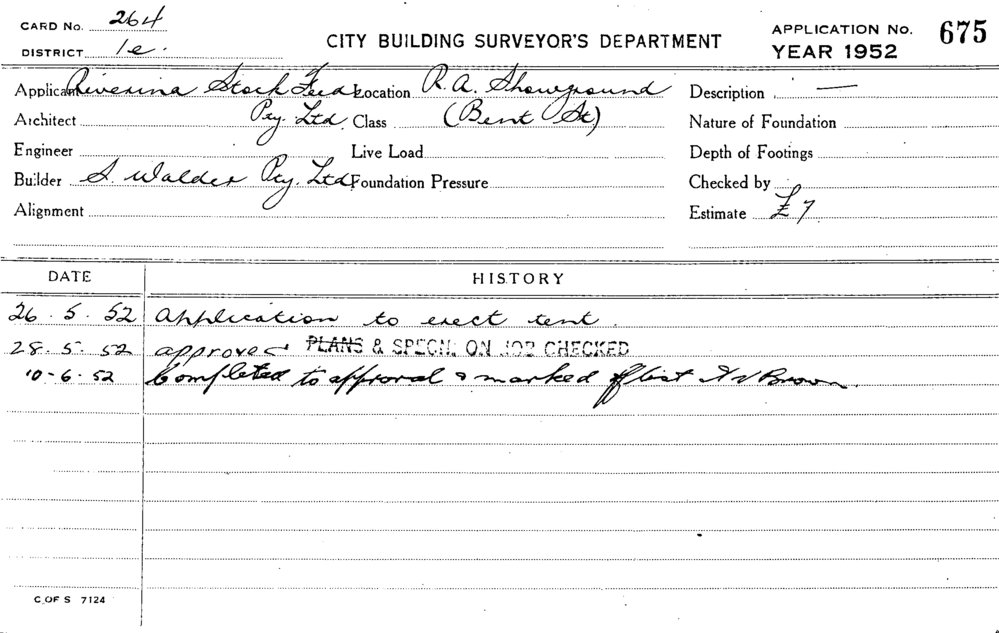 CARD No. 264
DISTRICT 1e.
CITY BUILDING SURVEYOR'S DEPARTMENT
APPLICATION No. 675
YEAR 1952
Applicant Riverina Stock Feeds Location R. A. Showground Description —
Architect Pty. Ltd. Class (Bent St) Nature of Foundation
Engineer Live Load Depth of Footings
Builder S. Walder Pty. Ltd. Foundation Pressure Checked by
Alignment Estimate £7
DATE HISTORY
26.5.52 Application to erect tent.
28.5.52 approved PLANS & SPECN. ON JOB CHECKED
10-6.52 Completed to approval & marked off list Brown.
C OF S 7124